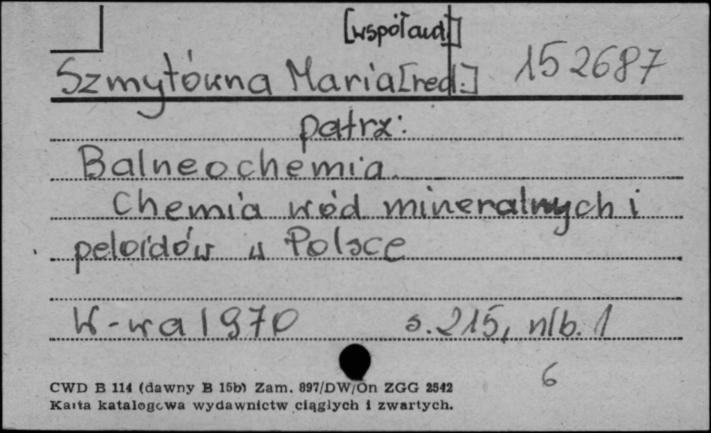 [współaut.]
Szmytówna Maria [red.] 152687
patrz:
Balneochemia
Chemia wód mineralnych i
peloidów w Polsce
W-wa 1970 s. 215, nlb. 1
6
CWD B 114 (dawny B 15b) Zam. 897/DW/On ZGG 2542
Karta katalogowa wydawnictw ciągłych i zwartych.